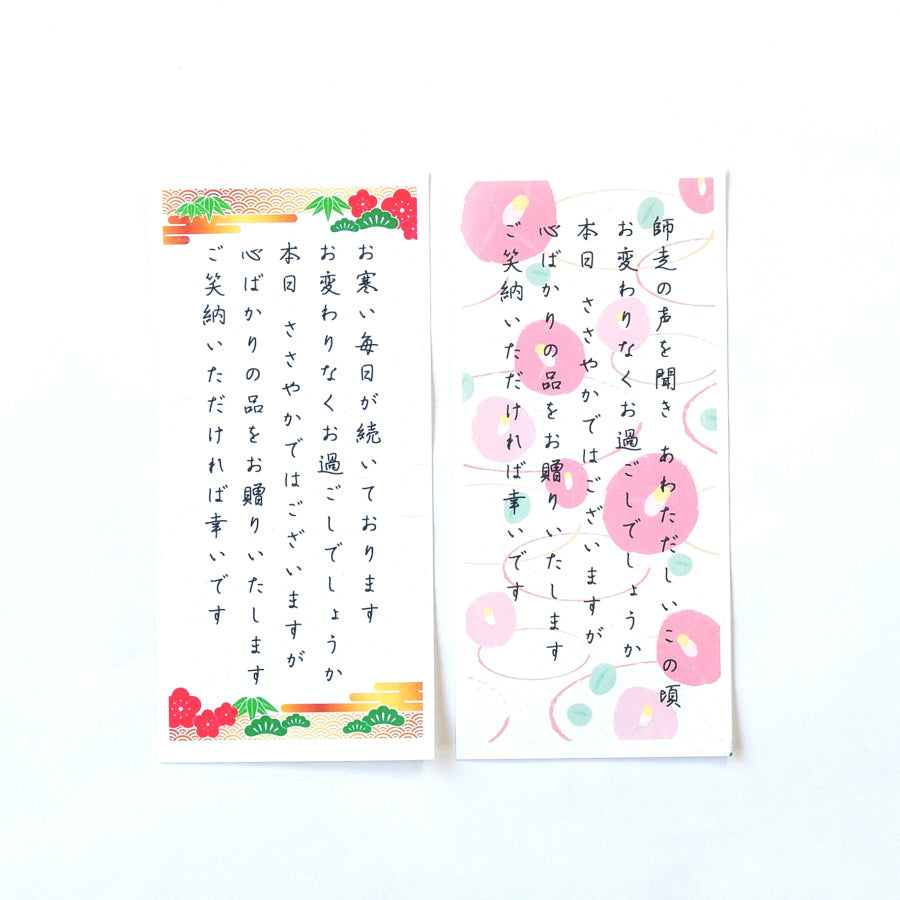 お寒い毎日が続いております
お変わりなくお過ごしでしょうか
本日　ささやかではございますが
心ばかりの品をお贈りいたします
ご笑納いただければ幸いです
師走の声を聞き　あわただしいこの頃
お変わりなくお過ごしでしょうか
本日　ささやかではございますが
心ばかりの品をお贈りいたします
ご笑納いただければ幸いです